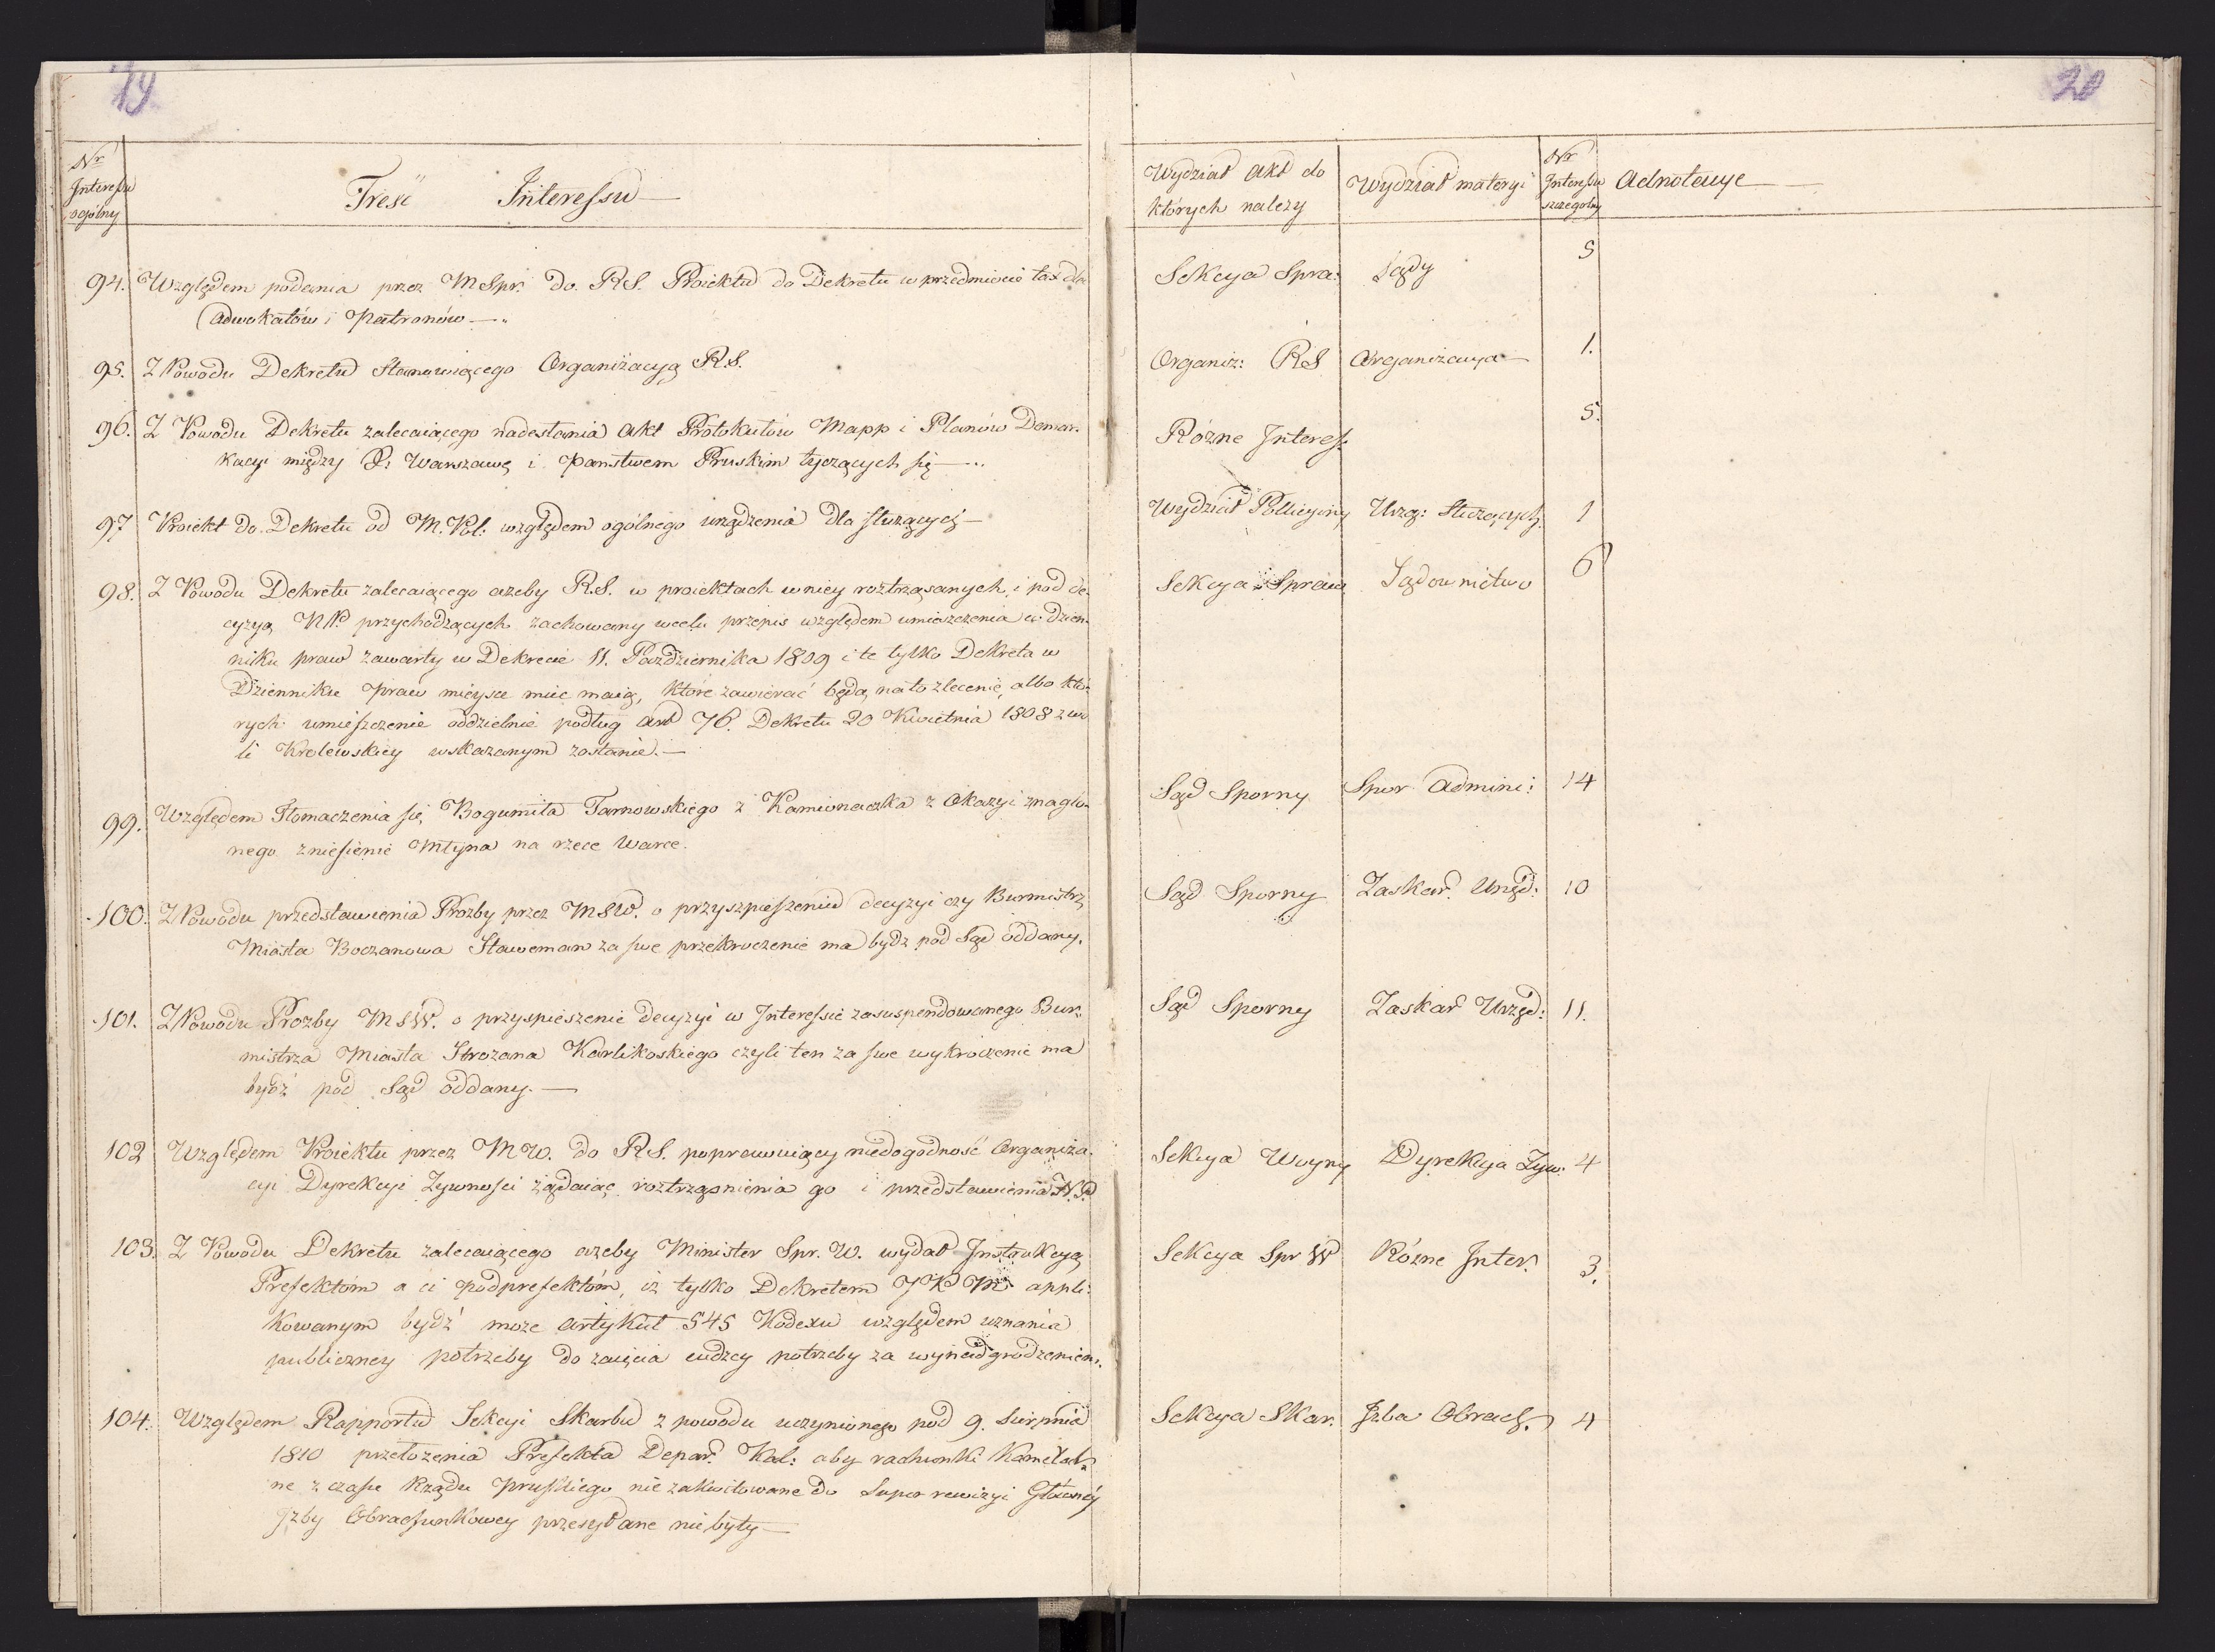 19
20
Nr Interessu ogólny
Treść Interessu
Wydział Akt do których należy
Wydział materyi
Nr Interessu szczegolny
Adnotacye
94. Względem podania przez MSpr: do RS. Proiektu do Dekretu w przedmiocie tax dla
Adwokatów i Patronów
Sekcya Spra: Sądy 5
95. Z Powodu Dekretu stanowiącego Organizacyą R.S.
Organiz: RS Organizacya 1.
96. Z Powodu Dekretu zalecaiącego nadesłania Akt Protokułów Mapp i Planów Demar-
kacyi między X. Warszawą i Panstwem Pruskim tyczących się
Rózne Interess: 5.
97 Proiekt do Dekretu od M. Pol: względem ogólnego urządzenia dla służących
Wydział Pollicyiny Urzą: Służących 1
98. Z Powodu Dekretu zalecaiącego azeby R.S. w proiektach w niey roztrząsanych, i pod de-
cyzyą NP. przychodzących zachowany weelu przepis względem umiezczenia w dzien-
niku praw zawarty w Dekrecie 11. Pazdziernika 1809 i te tylko Dekreta w
Dzienniku Praw mieysce miec maią, które zawierać będą na to zlecenie, albo któ-
rych umieszczenie oddzielnie podług art 76. Dekretu 20 Kwietnia 1808 z wo
li Krolewskiey wskazanym zostanie.
Sekcya Spraw Sądownictwo 6
99. Względem tłomaczenia się Bogumiła Tarnowskiego z Kamionaczka z Okazyi znaglo-
nego zniesienie Młyna na rzece Warce.
Sąd Sporny Spor Admini: 14
100. Z Powodu przedstawienia Prozby przez MSW. o przyszpieszeniu decyzyi czy Burmistrz
Miasta Boczanowa Staweman za swe przekroczenie ma bydz pod Sąd oddany.
Sąd Sporny Zaskar. Urzęd: 10
101. Z Powodu Prozby MSW. o przyspieszenie decyzyi w Interessie zasuspendowanego Bur-
mistrza Miasta Strozana Karlikoskiego czyli ten za swe wykroczenie ma
bydź pod Sąd oddany.
Sąd Sporny Zaskar Urzęd: 11.
102 Względem Proiektu przez MW. do R.S. poprawuiący niedogodność Organiza-
cyi Dyrekcyi Zywnosci ządaiąc roztrząsnienia go i przedstawienia N.P.
Sekcya Woyny Dyrekcya Zyw: 4
103. Z Powodu Dekretu zalecaiącego azeby Minister Spr. W. wydał Instrukcyą
Prefektom a ci podprefektóm, iż tylko Dekretem JKM appli-
kowanym bydź moze Artykuł 545 Kodexu względem uznania
publiczney potrzeby do zaięcia cudzey potrzeby za wynadgrodzeniem.
Sekcya Spr W Rózne Inter. 3.
104. Względem Rapportu Sekcyi Skarbu z powodu uczynionego pod 9. Sierpnia
1810 przełożenia Prefekta Depar. Kal: aby rachunki Kameral-
ne z czasu Rządu Pruskiego nie zakwitowane do Super rewizyi Główney
Izby Obrachunkowey przesyłane nie były
Sekcya Skar. Izba Obrach. 4